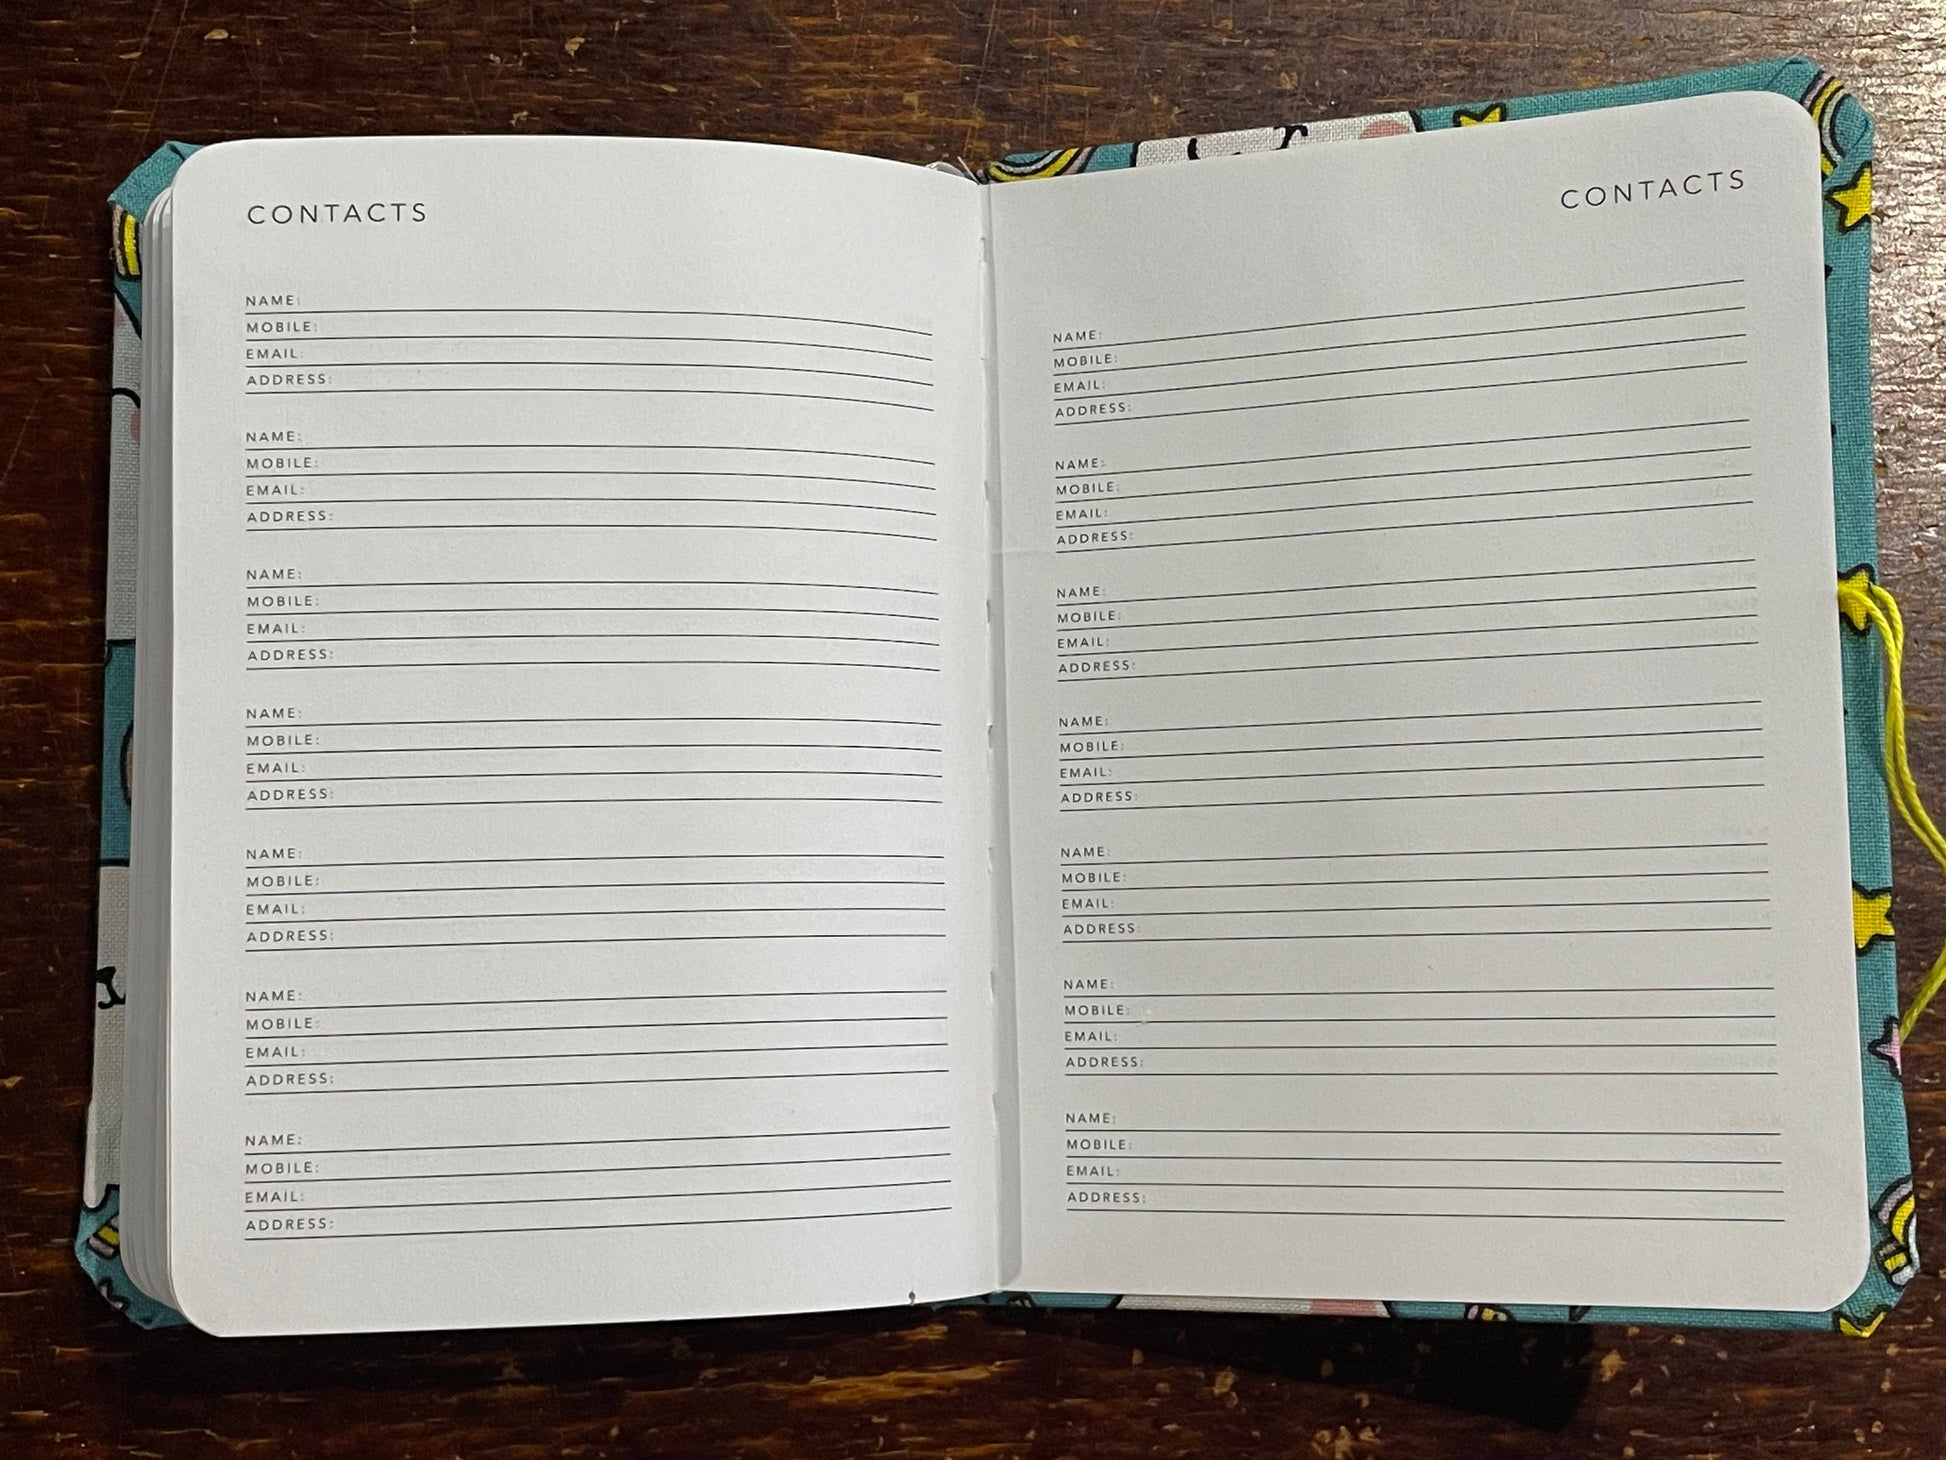 CONTACTS
NAME:
MOBILE:
EMAIL:
ADDRESS:
NAME:
MOBILE:
EMAIL:
ADDRESS:
NAME:
MOBILE:
EMAIL:
ADDRESS:
NAME:
MOBILE:
EMAIL:
ADDRESS:
NAME:
MOBILE:
EMAIL:
ADDRESS:
NAME:
MOBILE:
EMAIL:
ADDRESS:
NAME:
MOBILE:
EMAIL:
ADDRESS:
CONTACTS
NAME:
MOBILE:
EMAIL:
ADDRESS:
NAME:
MOBILE:
EMAIL:
ADDRESS:
NAME:
MOBILE:
EMAIL:
ADDRESS:
NAME:
MOBILE:
EMAIL:
ADDRESS:
NAME:
MOBILE:
EMAIL:
ADDRESS:
NAME:
MOBILE:
EMAIL:
ADDRESS:
NAME:
MOBILE:
EMAIL:
ADDRESS: